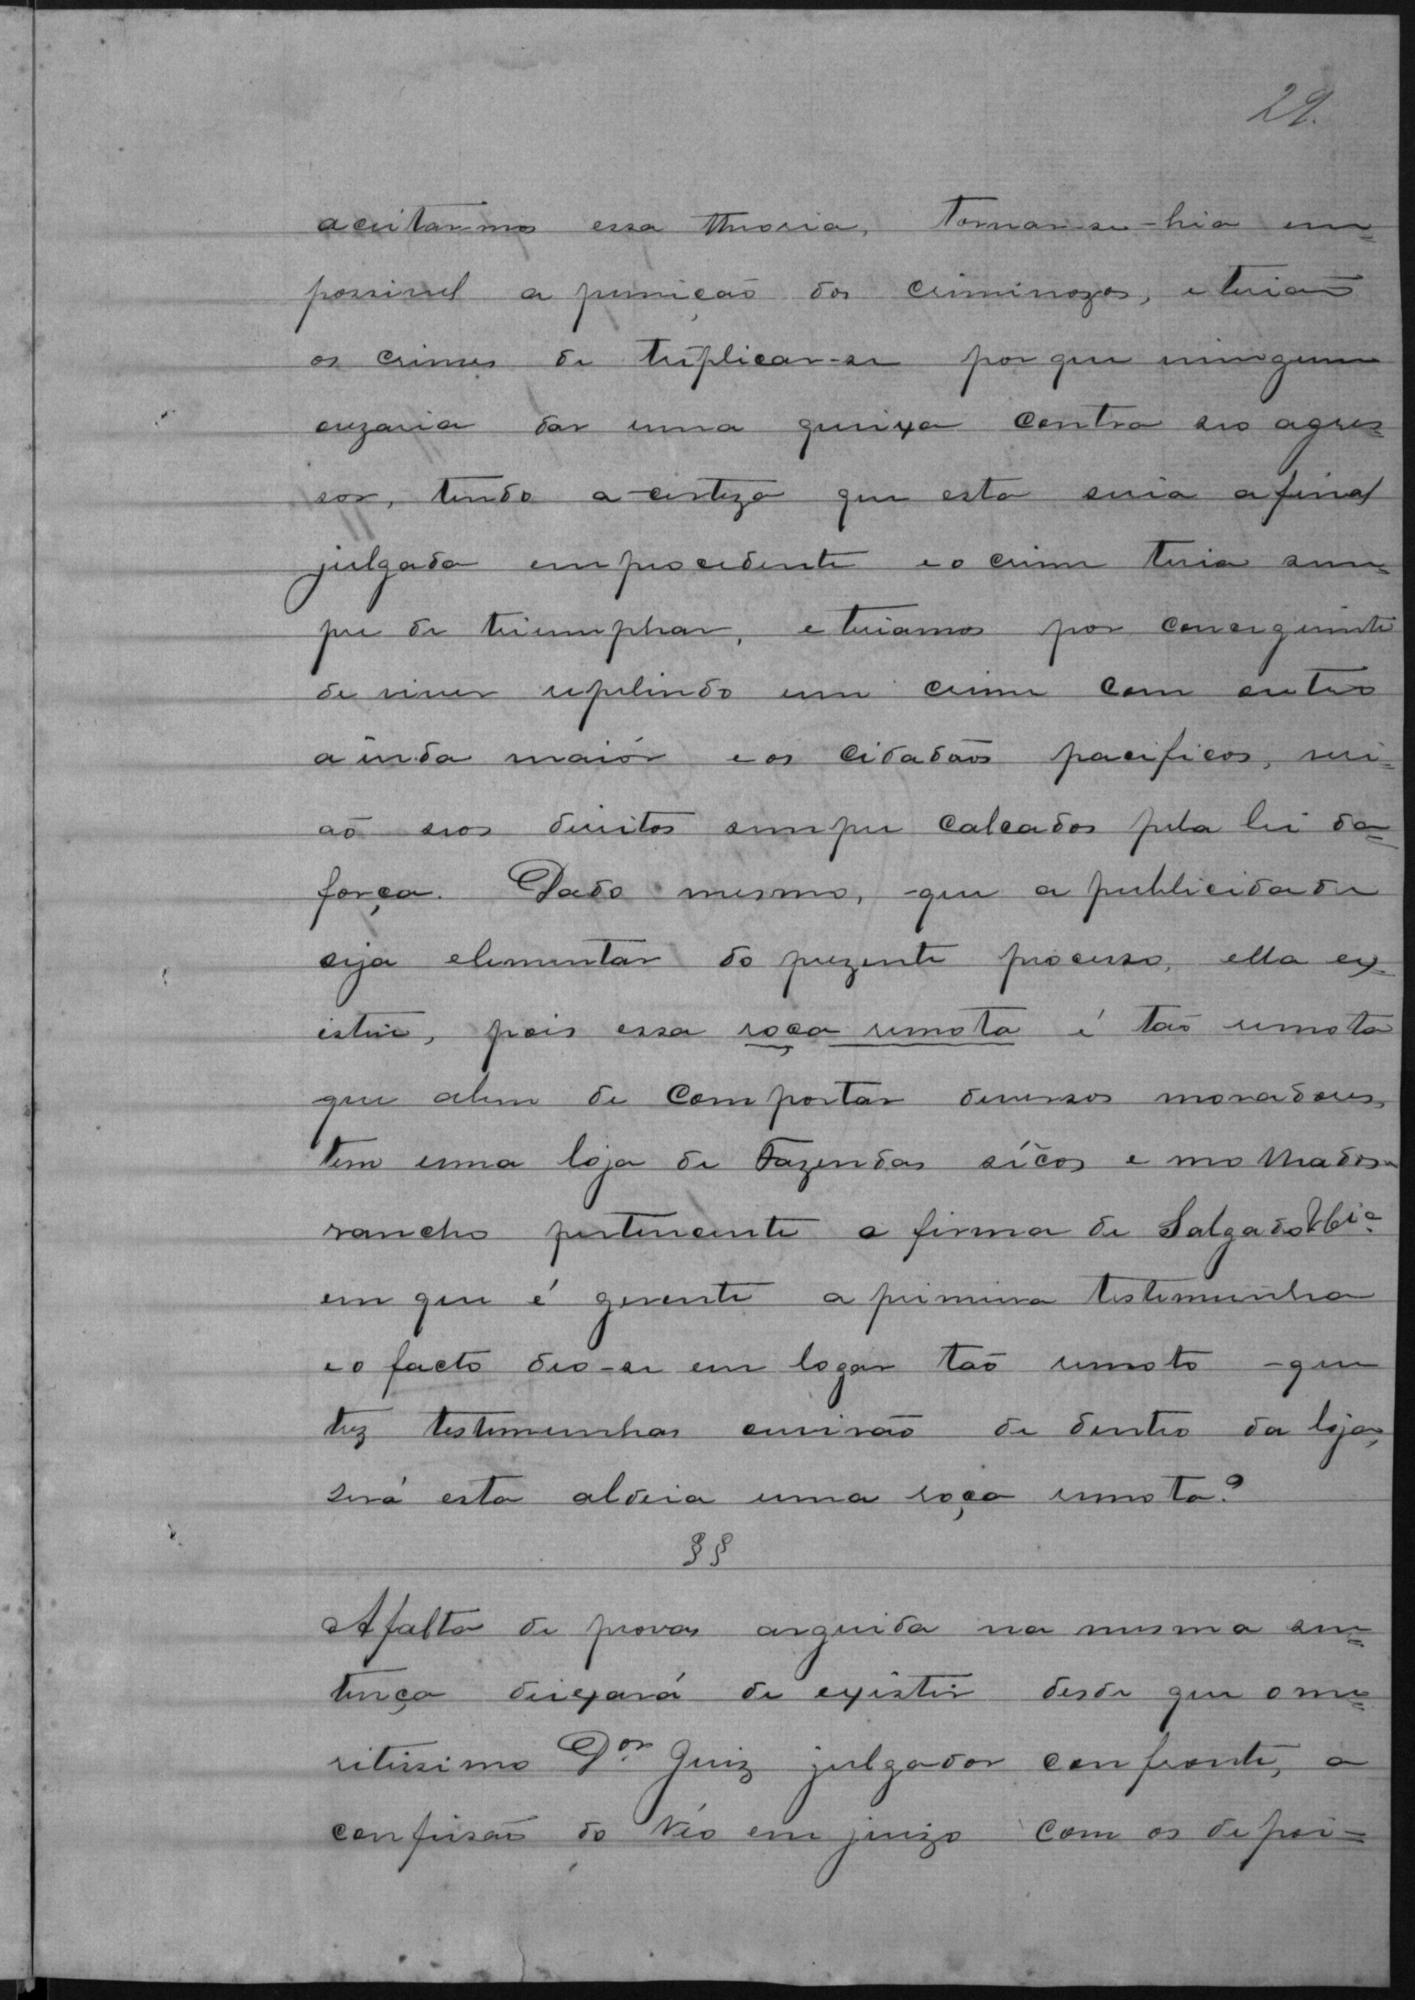 29.
aceitarmos essa theoria, tornar-se-hia em=
possivel a punição dos criminozos, e terião
os crimes de triplicar-se por que ninguem
ouzaria dar uma queixa contra seo agres=
sor, tendo a certeza que esta seria afinal
julgada emprocedente e o crime teria sem=
pre de triumphar, e teriamos por conceguinte
de viver repelindo um crime com outro
ainda maiór e os cidadãos pacificos, veri=
aõ seos direitos sempre calcados pela lei da=
força. Dado mesmo, que a publicidade
seja elementar do prezente processo, ella ex=
istio, pois essa roça remota é taõ remota
que alem de comportar diversos moradores,
tem uma loja de Fazendas sêcos e molhados
rancho pertencente a firma de Salgado & Cia.
em que é gerente a primeira testemunha
e o facto deo-se em logar taõ remoto que
trez testemunhas ouvirão de dentro da loja,
será esta aldeia uma roça remota?
§§
A falta de provas arguida na mesma sen=
tença deixará de existir desde que o me=
ritissimo Dor. Juiz julgador confronte, a
confissaõ do Réo em juizo com os depoi=